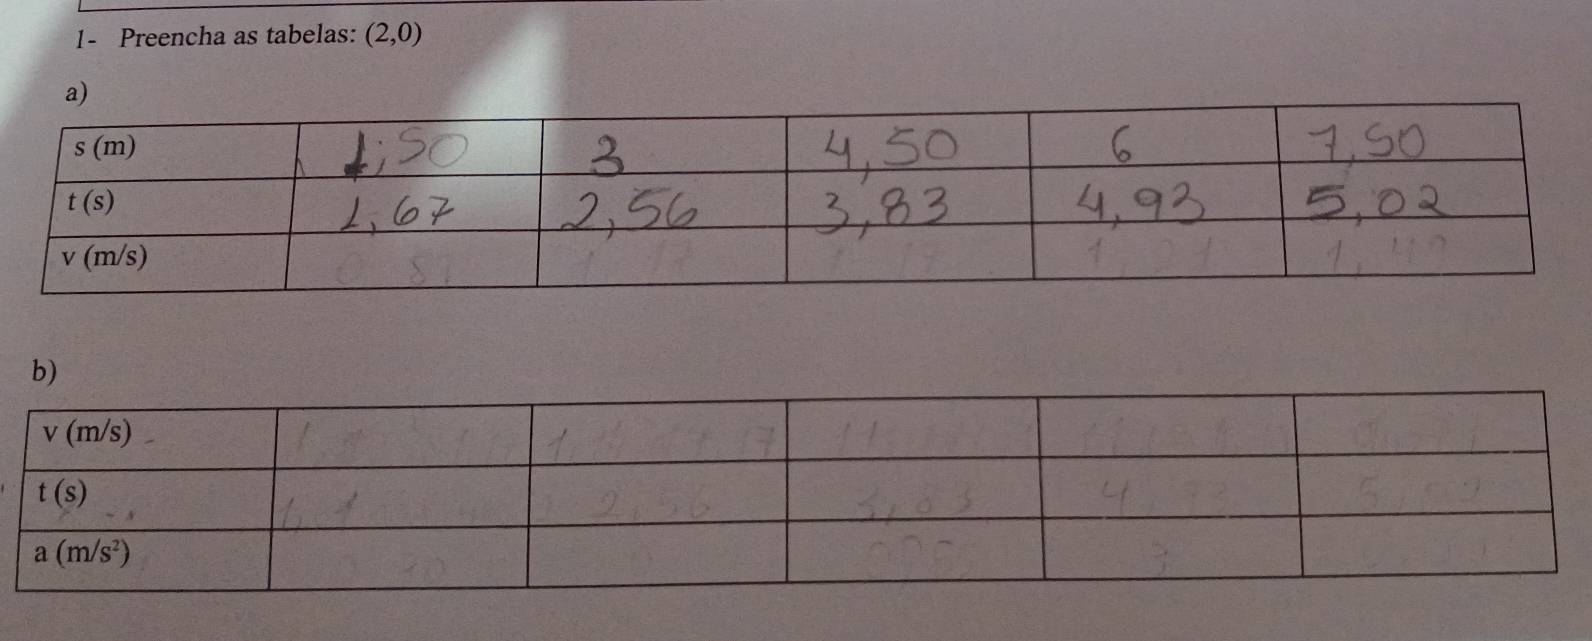 1- Preencha as tabelas: (2,0)
a)
s (m) 1,50 3 4,50 6 7,50
t (s) 1,67 2,56 3,83 4,93 5,02
v (m/s)
b)
v (m/s)
t (s) 2,56 3,83
a (m/s²)